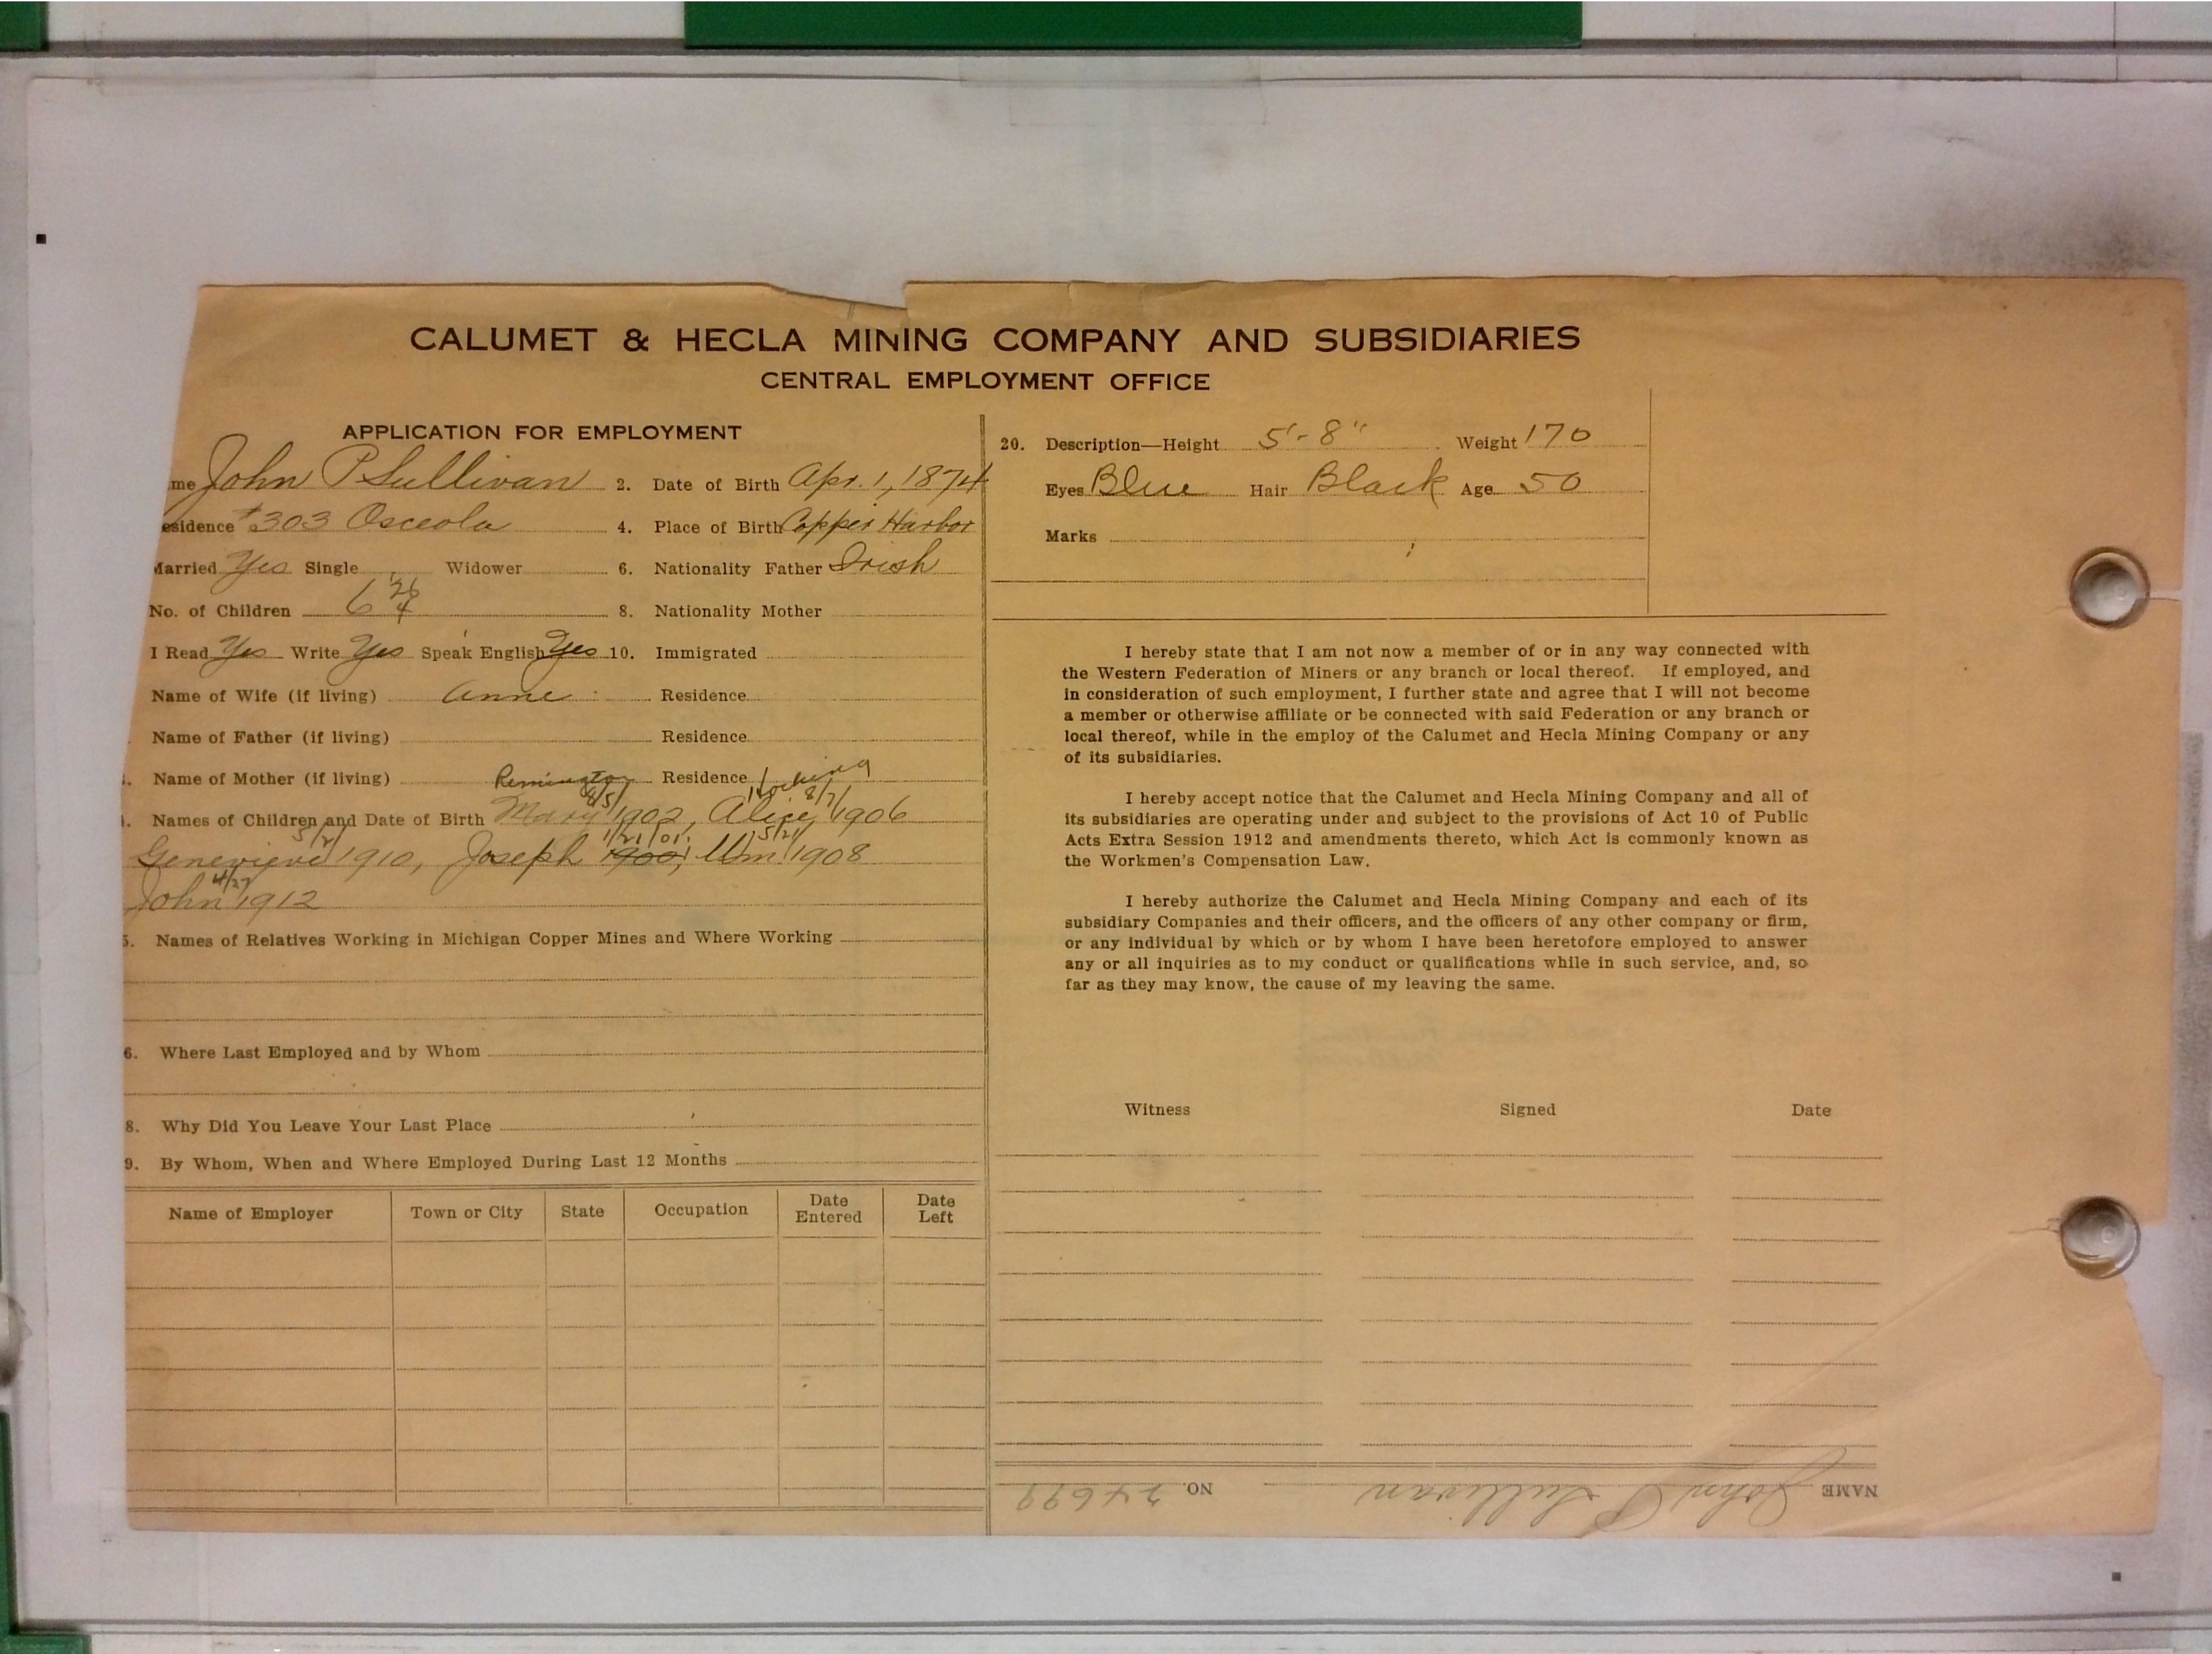 CALUMET & HECLA MINING COMPANY AND SUBSIDIARIES
CENTRAL EMPLOYMENT OFFICE
APPLICATION FOR EMPLOYMENT
me John P Sullivan 2. Date of Birth Apr. 1, 1874
esidence #303 Osceola 4. Place of Birth Copper Harbor
Married Yes Single Widower 6. Nationality Father Irish
26
No. of Children 6 4 8. Nationality Mother
I Read Yes Write Yes Speak English Yes 10. Immigrated
Name of Wife (if living) Anne Residence
Name of Father (if living) Residence
Name of Mother (if living) Residence
Remington
4/5/ 8/7/
Names of Children and Date of Birth Mary 1902, Alice 1906
5/2/ 1/21/01 5/21/
Genevieve 1910, Joseph 1900, Wm 1908
4/27
John 1912
5. Names of Relatives Working in Michigan Copper Mines and Where Working
6. Where Last Employed and by Whom
8. Why Did You Leave Your Last Place
9. By Whom, When and Where Employed During Last 12 Months
Name of Employer Town or City State Occupation Date Entered Date Left
20. Description—Height 5'-8" Weight 170
Eyes Blue Hair Black Age 50
Marks
I hereby state that I am not now a member of or in any way connected with
the Western Federation of Miners or any branch or local thereof. If employed, and
in consideration of such employment, I further state and agree that I will not become
a member or otherwise affiliate or be connected with said Federation or any branch or
local thereof, while in the employ of the Calumet and Hecla Mining Company or any
of its subsidiaries.
I hereby accept notice that the Calumet and Hecla Mining Company and all of
its subsidiaries are operating under and subject to the provisions of Act 10 of Public
Acts Extra Session 1912 and amendments thereto, which Act is commonly known as
the Workmen's Compensation Law.
I hereby authorize the Calumet and Hecla Mining Company and each of its
subsidiary Companies and their officers, and the officers of any other company or firm,
or any individual by which or by whom I have been heretofore employed to answer
any or all inquiries as to my conduct or qualifications while in such service, and, so
far as they may know, the cause of my leaving the same.
Witness Signed Date
NAME John P Sullivan NO. 24699